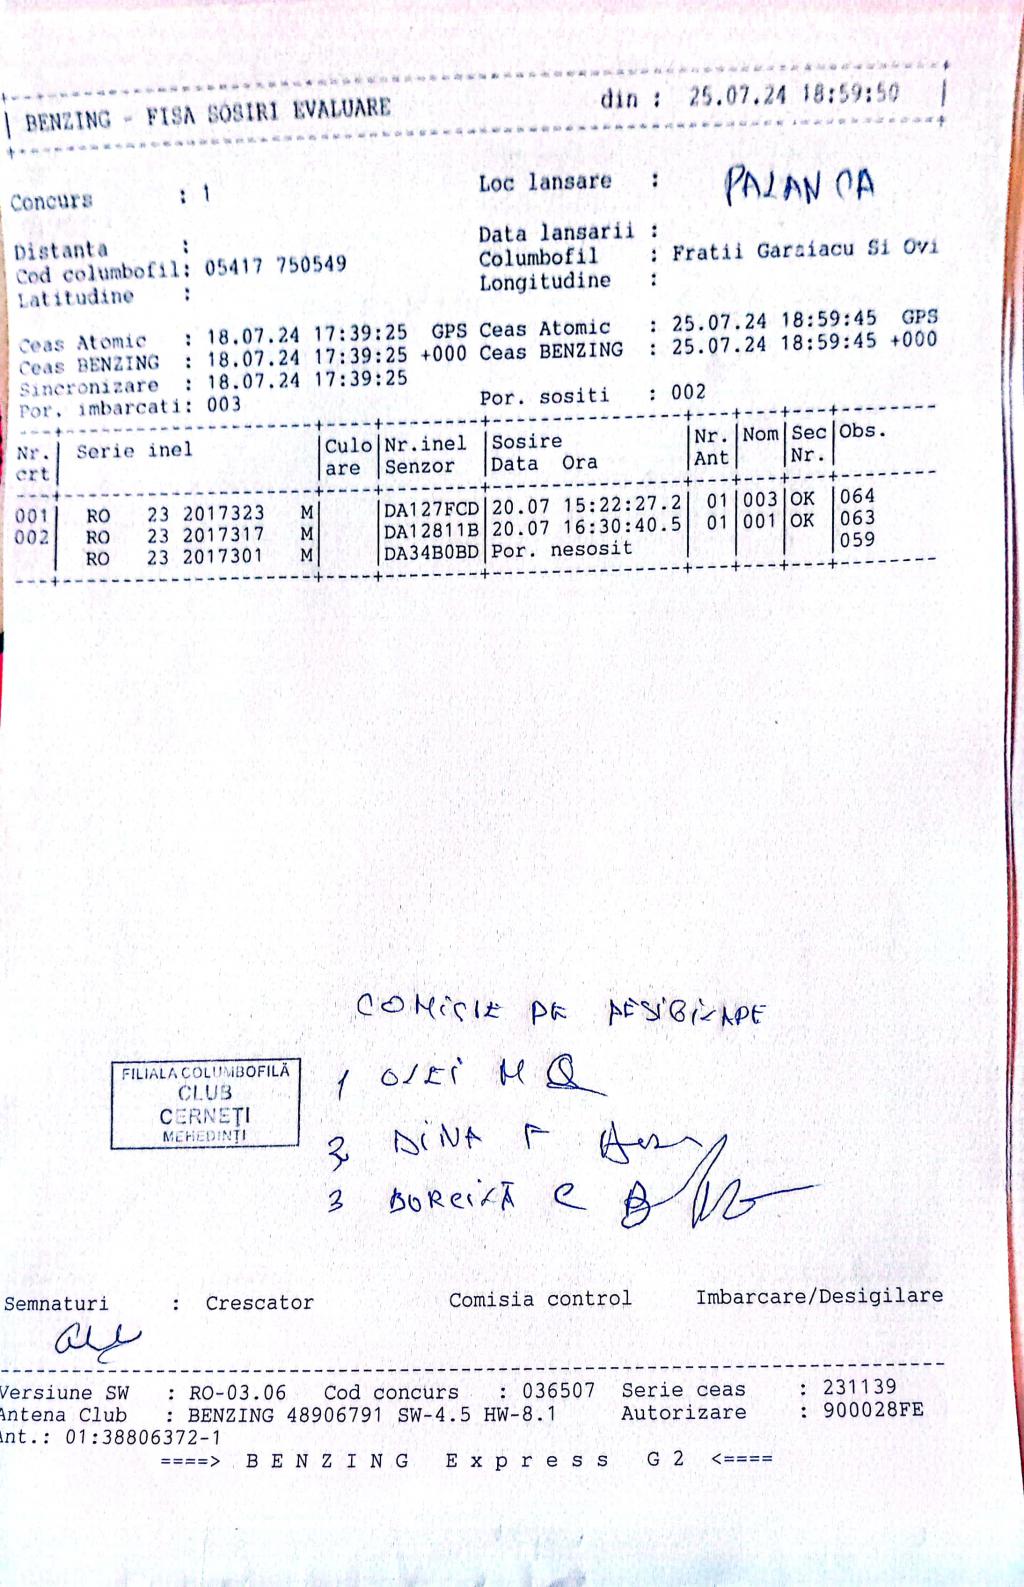 BENZING - FISA SOSIRI EVALUARE din : 25.07.24 18:59:50
Concurs : 1 Loc lansare : PALANCA
Distanta : Data lansarii :
Cod columbofil: 05417 750549 Columbofil : Fratii Garaiacu Si Ovi
Latitudine : Longitudine :
Ceas Atomic : 18.07.24 17:39:25 GPS Ceas Atomic : 25.07.24 18:59:45 GPS
Ceas BENZING : 18.07.24 17:39:25 +000 Ceas BENZING : 25.07.24 18:59:45 +000
Sincronizare : 18.07.24 17:39:25
Por. imbarcati: 003 Por. sositi : 002
Nr. Serie inel Culo Nr.inel Sosire Nr. Nom Sec Obs.
crt are Senzor Data Ora Ant Nr.
001 RO 23 2017323 M DA127FCD 20.07 15:22:27.2 01 003 OK 064
002 RO 23 2017317 M DA12811B 20.07 16:30:40.5 01 001 OK 063
RO 23 2017301 M DA34B0BD Por. nesosit 059
COMISIE DE DESIGILARE
FILIALA COLUMBOFILĂ
CLUB
CERNEȚI
MEHEDINȚI
1 OLEI M
2 DINA F
3 BORCILĂ C
Semnaturi : Crescator Comisia control Imbarcare/Desigilare
Versiune SW : RO-03.06 Cod concurs : 036507 Serie ceas : 231139
Antena Club : BENZING 48906791 SW-4.5 HW-8.1 Autorizare : 900028FE
Ant.: 01:38806372-1
====> B E N Z I N G E x p r e s s G 2 <====